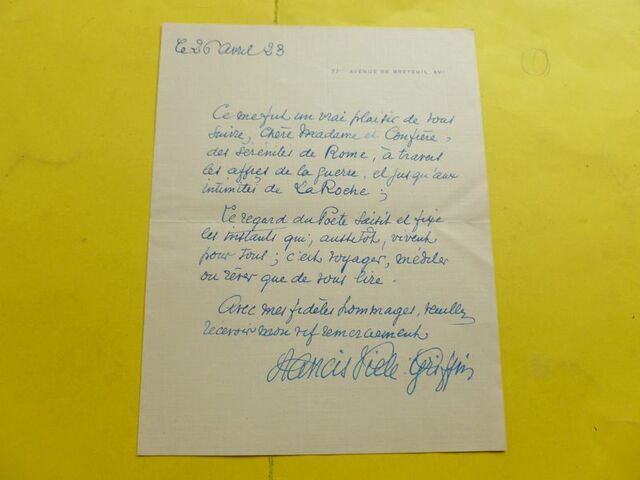 Le 26 Avril 23
77bis AVENUE DE BRETEUIL XVe
Ce me fut un vrai plaisir de vous
suivre, Chère Madame et Confrère,
des sérénités de Rome, à travers
les affres de la guerre, et jusqu'aux
intimités de La Roche ;
Le regard du Poète saisit et fixe
les instants qui, aussitôt, vivent
pour tous ; c'est voyager, méditer
ou rêver que de vous lire.
Avec mes fidèles hommages, veuillez
recevoir mon vif remerciement
Francis Vielé-Griffin
1